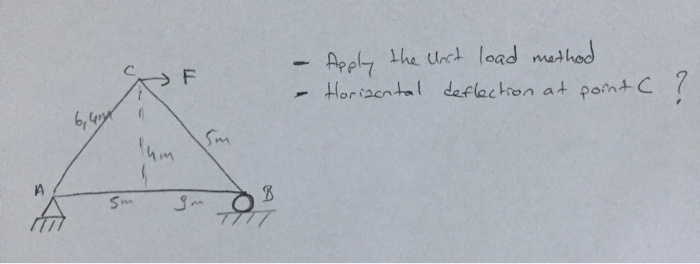 - Apply the Unit load method
- Horizontal deflection at point C ?
C → F
6,4m
5m
4m
A
B
5m
3m